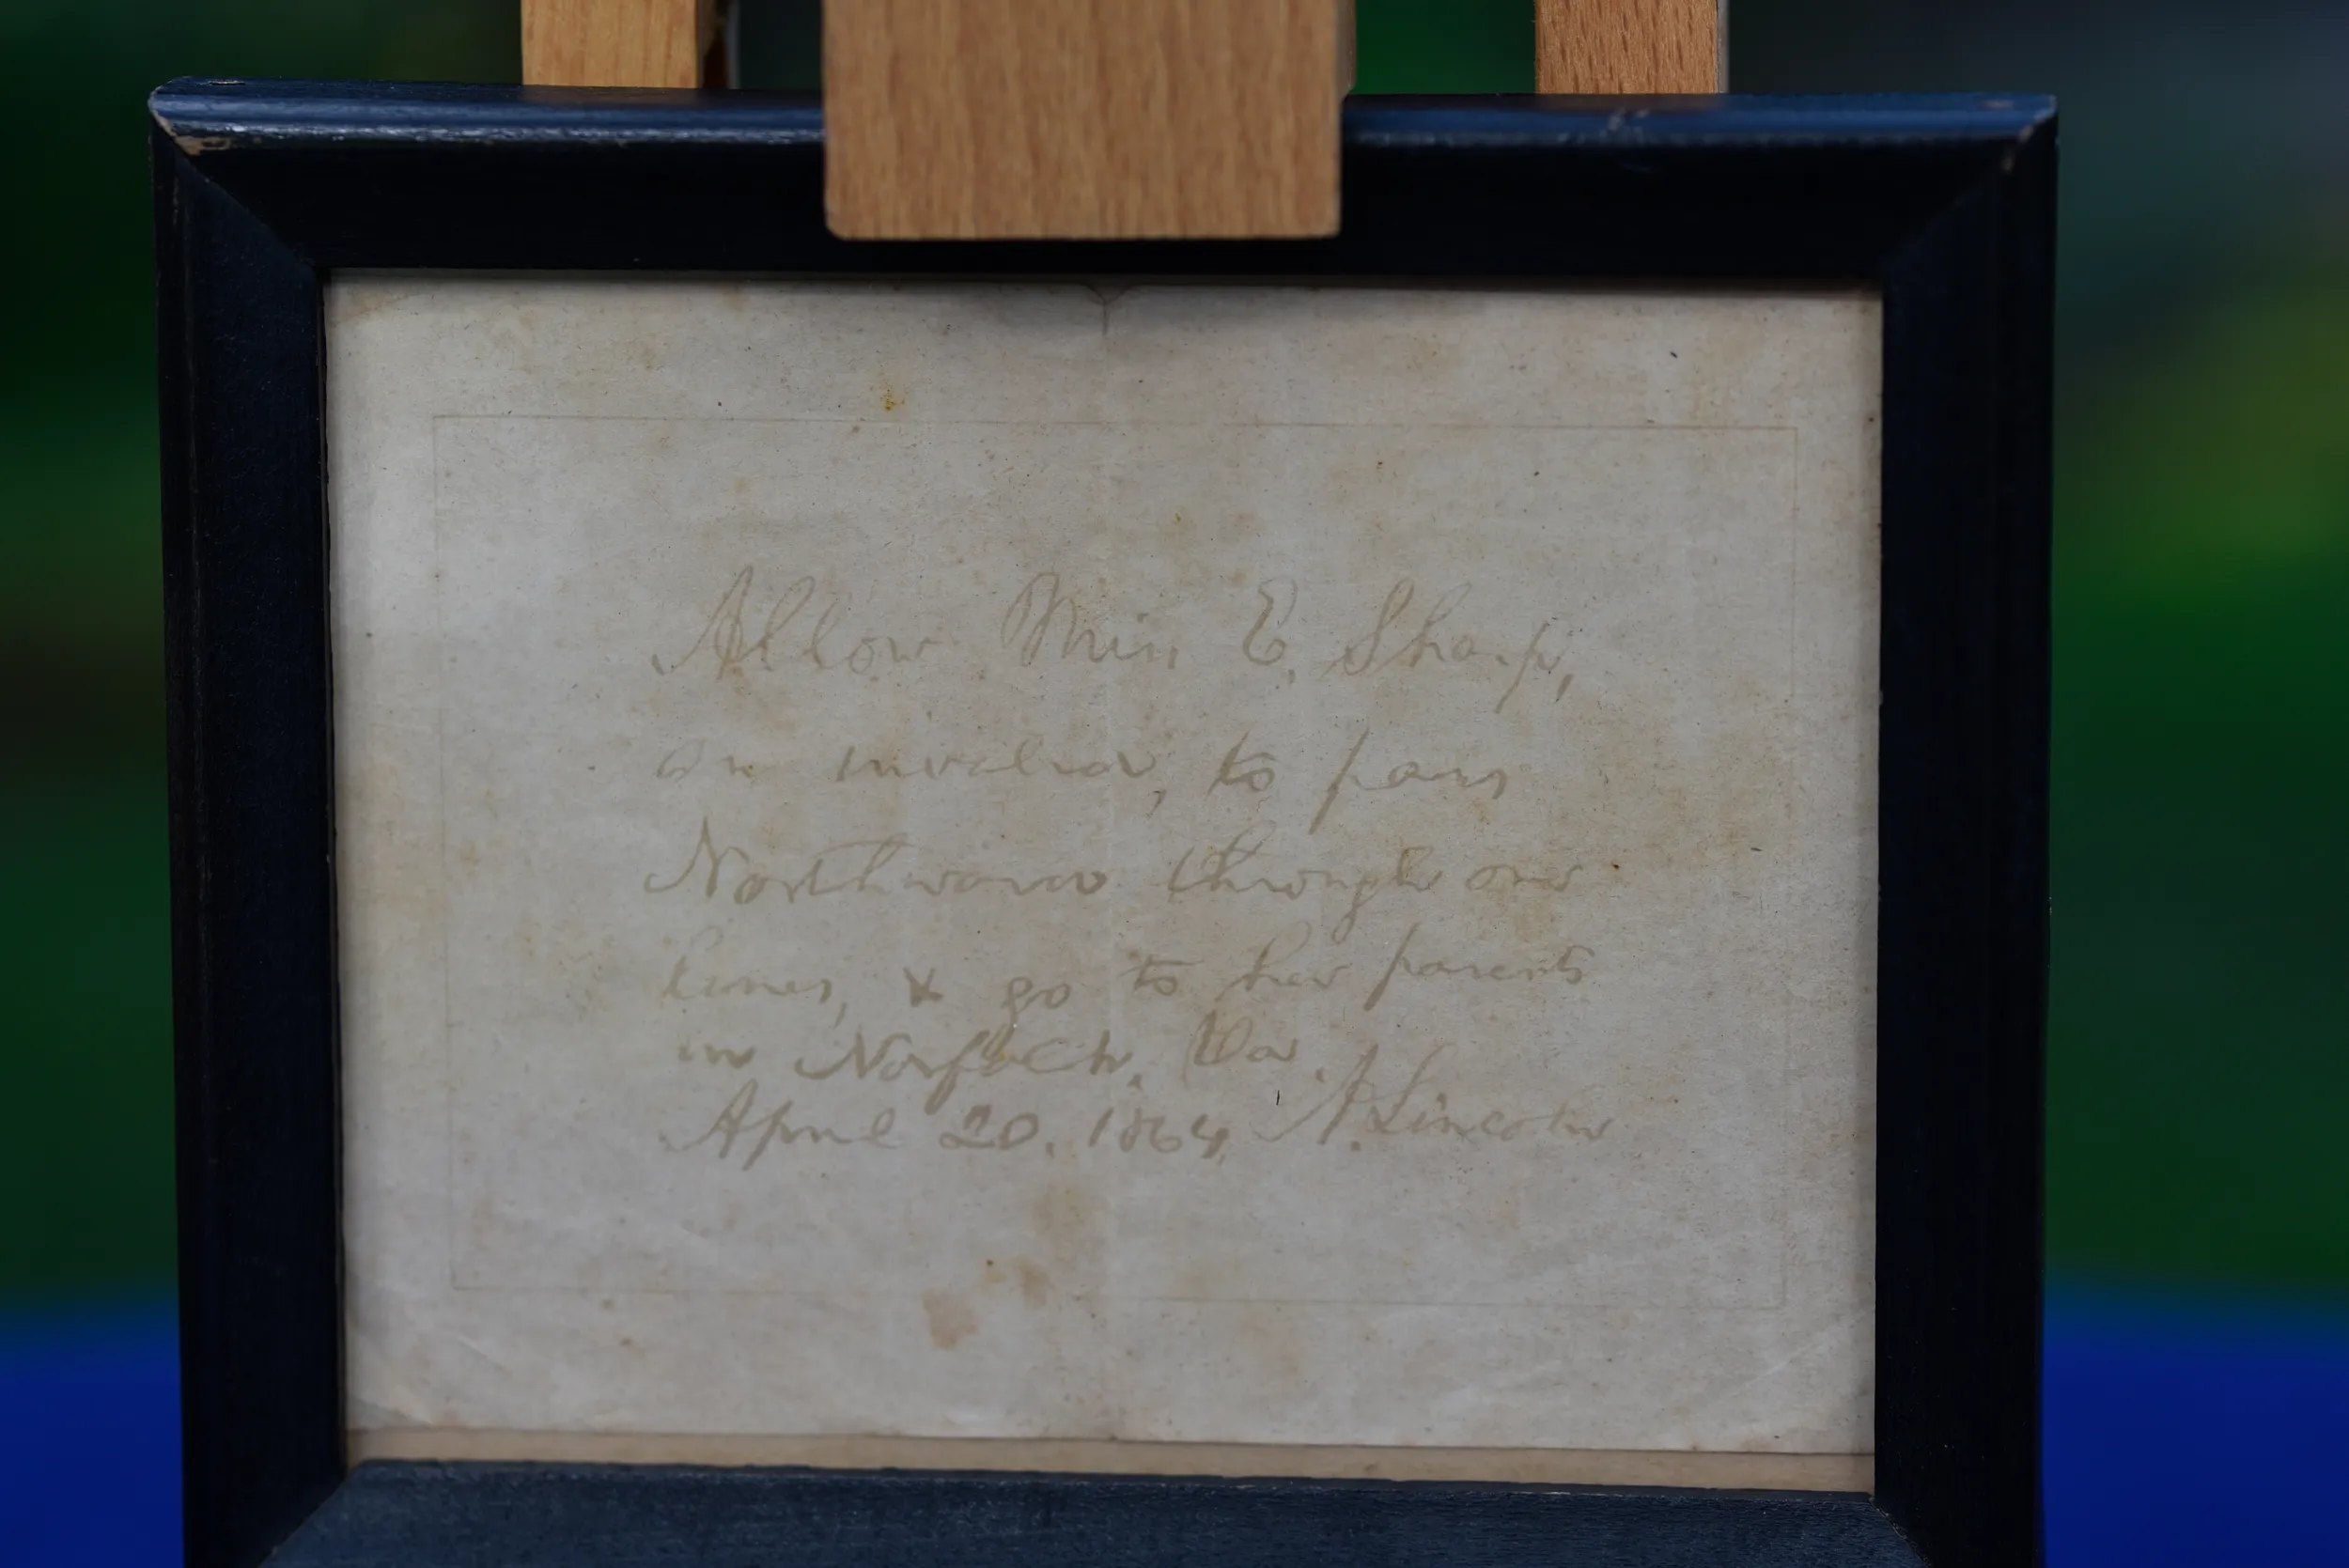 Allow Miss E. Sharp,
an invalid, to pass
Northward through our
lines, & go to her parents
in Norfolk, Va.
April 20, 1864, A. Lincoln